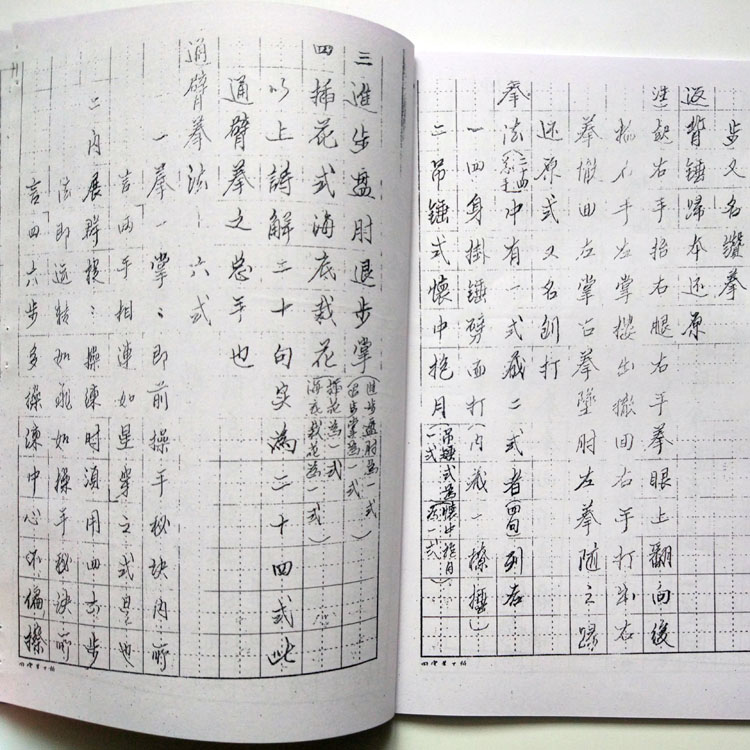 步又名纘拳
返背锤歸本还原
(注)起右手抬右腿右手拳眼上翻向後
右手左掌搂出撤回右手打出右
拳撤回左掌右拳墜肘左拳随之歸
还原式又名剑打
拳法(三十四总手)中有一式藏二式者(四句)列右
一四身掛锤劈面打(内藏一撩捶)
二吊锤式懷中抱月(吊锤式為一式 懷中抱月為一式)
三進步盘肘退步掌(進步盘肘為一式 退步掌為一式)
四插花式海底栽花(插花為一式 海底栽花為一式)
以上詩解二十句实為二十四式此
通臂拳之总手也
通臂拳法一六式
一拳一掌:即前操手秘块内所
言两手相連如星穿之式是也
二内展辟搂:操凍时須用四六步
法即运转如飛如操手秘决所
言四六步多操凍中心不偏操